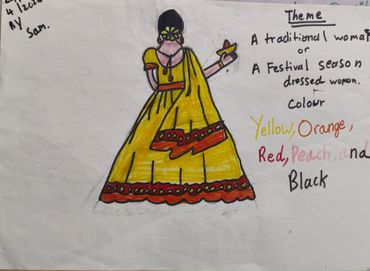 4/202
By
Sam.
Theme
A traditional woman
or
A Festival season
dressed woman.
Colour
Yellow, Orange,
Red, Peach, and
Black